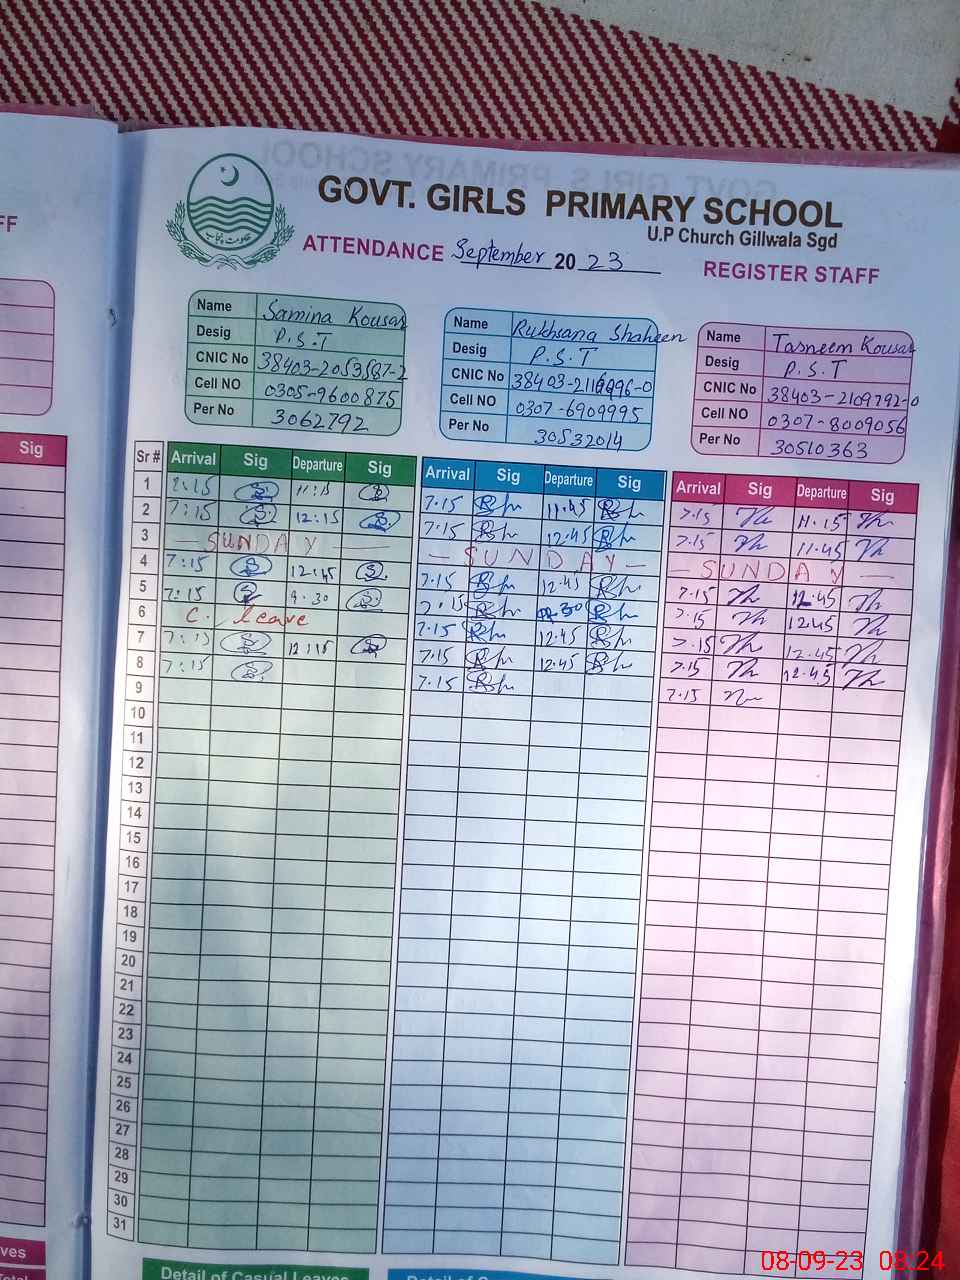 GOVT. GIRLS PRIMARY SCHOOL
U.P Church Gillwala Sgd
ATTENDANCE September 2023
REGISTER STAFF
FF
حکومت پنجاب
Name Samina Kousar
Desig P.S.T
CNIC No 38403-2053587-2
Cell NO 0305-9600875
Per No 3062792
Name Rukhsana Shaheen
Desig P.S.T
CNIC No 38403-2116996-0
Cell NO 0307-6909995
Per No 30532014
Name Tasneem Kousar
Desig P.S.T
CNIC No 38403-2109792-0
Cell NO 0307-8009056
Per No 30510363
Sig
Sr # Arrival Sig Departure Sig Arrival Sig Departure Sig Arrival Sig Departure Sig
1 11:15 7.15 11.45 7.15 11.15
2 7:15 12:15 7.15 12.45 7.15 11.45
3 — SUNDAY — — SUNDAY — — SUNDAY —
4 7:15 12:45 7.15 12.45 7.15 12.45
5 7:15 9.30 7.15 7.15 12.45
6 C. leave 7.15 12.45 7.15 12.45
7 7:15 12:15 7.15 12.45 7.15 12.45
8 7:15 7.15 7.15
9
10
11
12
13
14
15
16
17
18
19
20
21
22
23
24
25
26
27
28
29
30
31
ves
Total
Detail of Casual Leaves
Detail of C
08-09-23 08:24